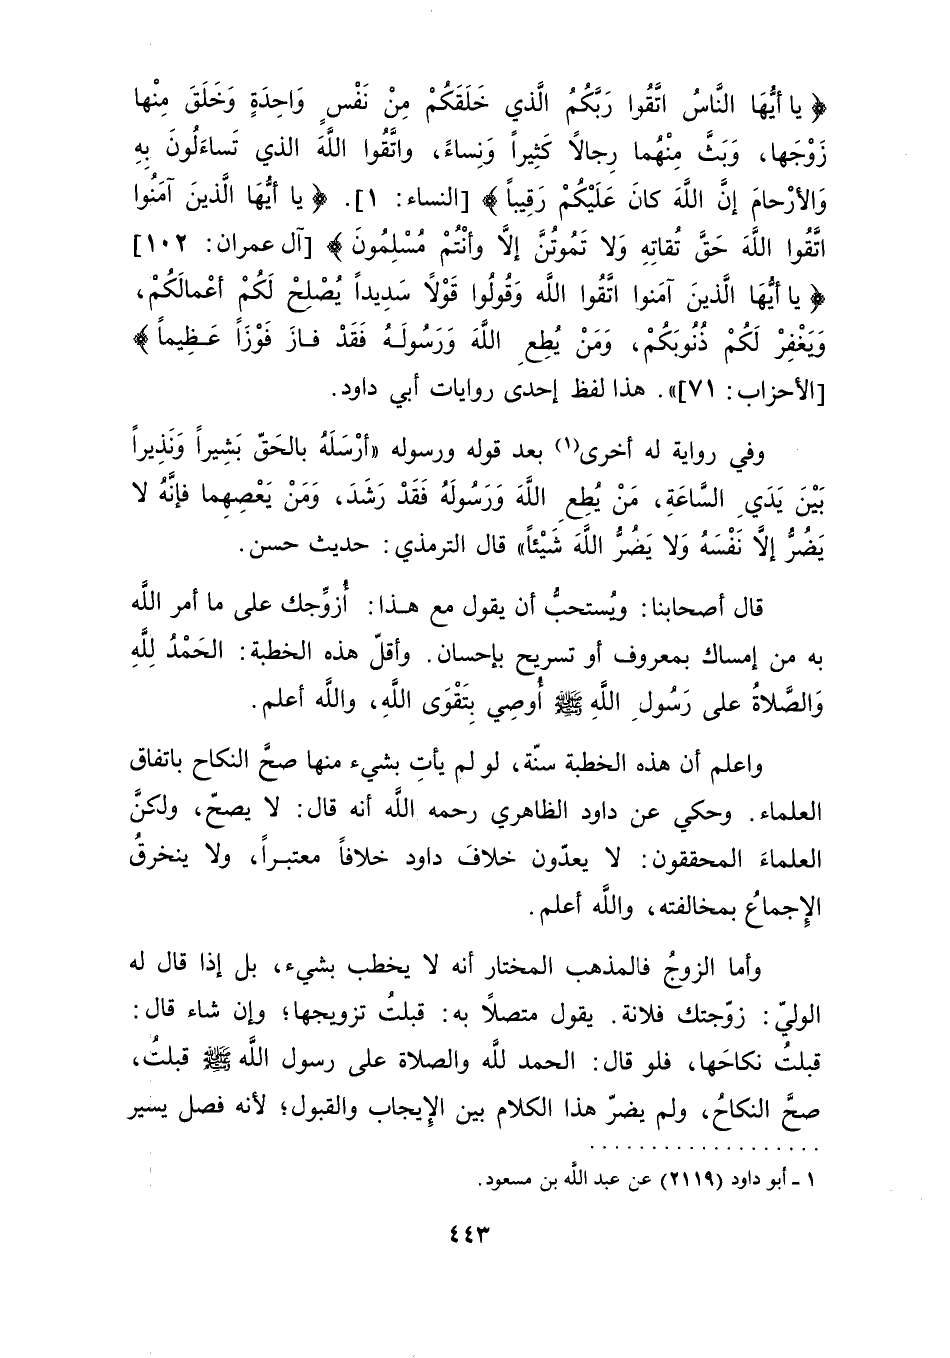 ﴿ يا أيُّهَا النَّاسُ اتَّقُوا رَبَّكُمُ الَّذي خَلَقَكُمْ مِنْ نَفْسٍ وَاحِدَةٍ وَخَلَقَ مِنْها
زَوْجَها، وَبَثَّ مِنْهُما رِجالاً كَثِيراً وَنِساءً، واتَّقُوا اللَّهَ الذي تَساءَلُونَ بِهِ
وَالأرْحامَ إنَّ اللَّهَ كانَ عَلَيْكُمْ رَقِيباً﴾ [النساء: ١]. ﴿ يا أيُّهَا الَّذينَ آمَنُوا
اتَّقُوا اللَّهَ حَقَّ تُقاتِهِ وَلا تَمُوتُنَّ إلَّا وأنْتُمْ مُسْلِمُونَ﴾ [آل عمران: ١٠٢]
﴿ يا أيُّهَا الَّذينَ آمَنوا اتَّقُوا اللَّه وَقُولُوا قَوْلاً سَدِيداً يُصْلِحْ لَكُمْ أعْمالَكُمْ،
وَيَغْفِرْ لَكُمْ ذُنُوبَكُمْ، وَمَنْ يُطِعِ اللَّهَ وَرَسُولَـهُ فَقَدْ فـازَ فَوْزَاً عَـظِيماً﴾
[الأحزاب: ٧١]». هذا لفظ إحدى روايات أبي داود.
وفي رواية له أخرى(١) بعد قوله ورسوله «أرْسَلَهُ بالحَقّ بَشِيراً وَنَذِيراً
بَيْنَ يَدَي السَّاعَةِ، مَنْ يُطِعِ اللَّهَ وَرَسُولَهُ فَقَدْ رَشَدَ، وَمَنْ يَعْصِهِما فإنَّهُ لا
يَضُرُّ إلَّا نَفْسَهُ وَلا يَضُرُّ اللَّهَ شَيْئاً» قال الترمذي: حديث حسن.
قال أصحابنا: ويُستحبُّ أن يقول مع هـذا: أُزوِّجك على ما أمر اللَّه
به من إمساك بمعروف أو تسريح بإحسان. وأقلّ هذه الخطبة: الحَمْدُ لِلَّهِ
وَالصَّلاةُ على رَسُولِ اللَّهِ ﷺ أُوصِي بِتَقْوَى اللَّهِ، واللَّه أعلم.
واعلم أن هذه الخطبة سنّة، لو لم يأتِ بشيء منها صحَّ النكاح باتفاق
العلماء. وحكي عن داود الظاهري رحمه اللَّه أنه قال: لا يصحّ، ولكنَّ
العلماءَ المحققون: لا يعدّون خلافَ داود خلافاً معتبـراً، ولا ينخرقُ
الإِجماعُ بمخالفته، واللَّه أعلم.
وأما الزوجُ فالمذهب المختار أنه لا يخطب بشيء، بل إذا قال له
الوليّ: زوّجتك فلانة. يقول متصلاً به: قبلتُ تزويجها؛ وإن شاء قال:
قبلتُ نكاحَها، فلو قال: الحمد للَّه والصلاة على رسول اللَّه ﷺ قبلتُ،
صحَّ النكاحُ، ولم يضرّ هذا الكلام بين الإِيجاب والقبول؛ لأنه فصل يسير
١ - أبو داود (٢١١٩) عن عبد اللَّه بن مسعود.
٤٤٣